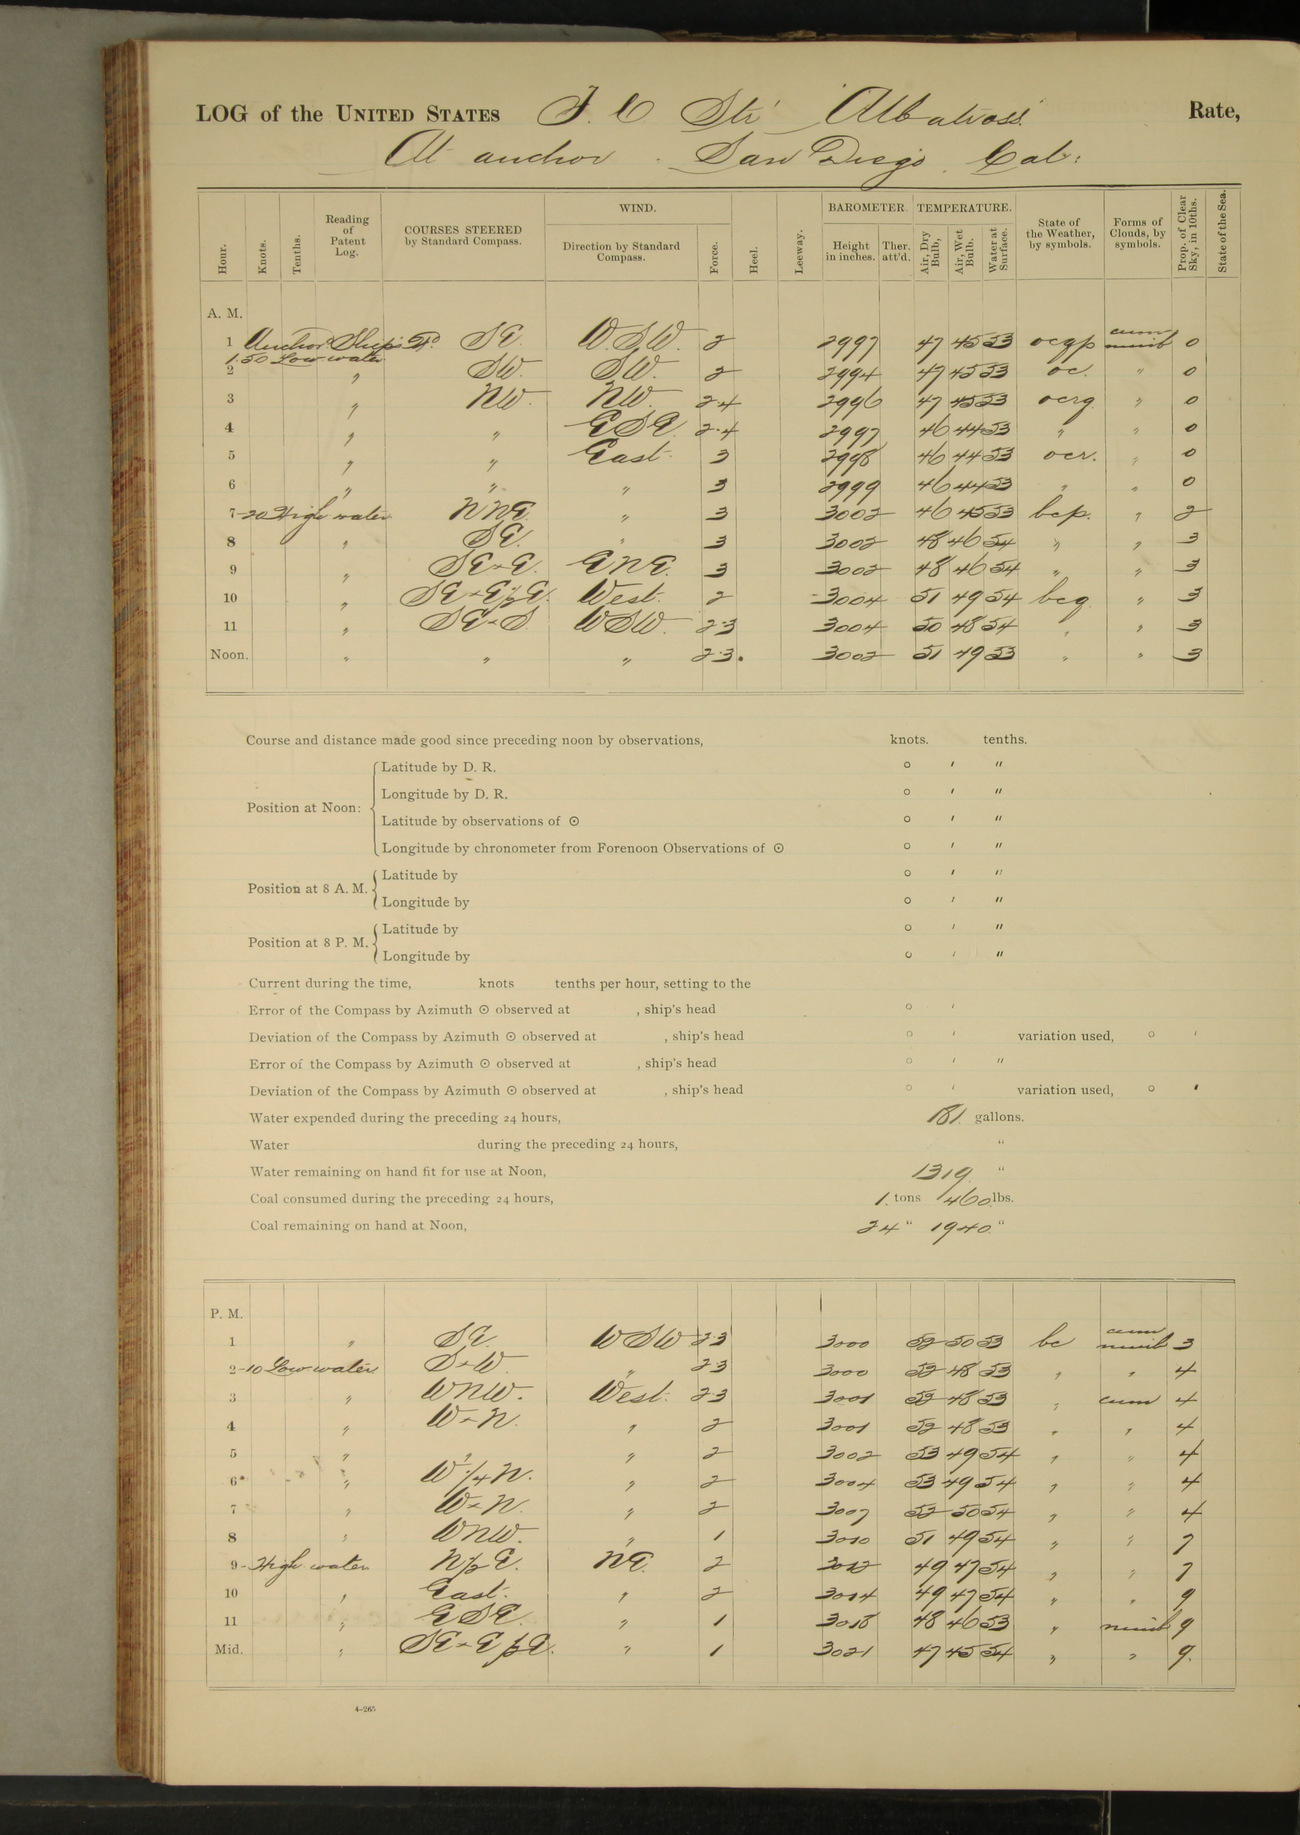 LOG of the UNITED STATES F. C. Str. "Albatross" Rate,
At anchor. San Diego. Cal:
Hour. Knots. Tenths. Reading of Patent Log. COURSES STEERED by Standard Compass. WIND. Direction by Standard Compass. Force. Heel. Leeway. BAROMETER. Height in inches. Ther. att'd. TEMPERATURE. Air, Dry Bulb, Air, Wet Bulb. Water at Surface. State of the Weather, by symbols. Forms of Clouds, by symbols. Prop. of Clear Sky, in 10ths. State of the Sea.
A. M.
1 Anchor. Ship's Hd. SE. W.S.W. 2 2997 47 45 53 ocqp cum nimb 0
1.50 Low water
2 " SW. SW. 2 2994 47 45 53 oc. " 0
3 " NW. NW. 2-4 2996 47 45 53 ocrq " 0
4 " " ESE. 2-4 2997 46 44 53 " " 0
5 " " East. 3 2998 46 44 53 ocr. " 0
6 " " " 3 2999 46 44 53 " " 0
7-20 High water NNE. " 3 3002 46 45 53 bcp. " 2
8 " SE. " 3 3002 48 46 54 " " 3
9 " SExE. ENE. 3 3002 48 46 54 " " 3
10 " SExE½E. West. 2 3004 51 49 54 bcq " 3
11 " SExS. WSW. 2-3 3004 50 48 54 " " 3
Noon. " " " 2-3. 3002 51 49 53 " " 3
Course and distance made good since preceding noon by observations, knots. tenths.
Position at Noon: Latitude by D. R. ° ' "
Longitude by D. R. ° ' "
Latitude by observations of ☉ ° ' "
Longitude by chronometer from Forenoon Observations of ☉ ° ' "
Position at 8 A. M. Latitude by ° ' "
Longitude by ° ' "
Position at 8 P. M. Latitude by ° ' "
Longitude by ° ' "
Current during the time, knots tenths per hour, setting to the
Error of the Compass by Azimuth ☉ observed at , ship's head ° '
Deviation of the Compass by Azimuth ☉ observed at , ship's head ° ' variation used, ° '
Error of the Compass by Azimuth ☉ observed at , ship's head ° ' "
Deviation of the Compass by Azimuth ☉ observed at , ship's head ° ' variation used, ° '
Water expended during the preceding 24 hours, 181 gallons.
Water during the preceding 24 hours, "
Water remaining on hand fit for use at Noon, 1319. "
Coal consumed during the preceding 24 hours, 1. tons 460 lbs.
Coal remaining on hand at Noon, 24 " 1940. "
P. M.
1 " SE. WSW 2-3 3000 52 50 53 bc cum nimb 3
2-10 Low water SxW. " 2-3 3000 52 48 53 " " 4
3 " WNW. West. 2-3 3001 52 48 53 " cum 4
4 " WxN. " 2 3001 52 48 53 " " 4
5 " " " 2 3002 53 49 54 " " 4
6 " W¼N. " 2 3004 53 49 54 " " 4
7 " WxN. " 2 3007 52 50 54 " " 4
8 " WNW. " 1 3010 51 49 54 " " 7
9- High water N½E. NE. 2 3012 49 47 54 " " 7
10 " East. " 2 3014 49 47 54 " " 9
11 " ESE. " 1 3018 48 46 53 " nimb 9
Mid. " SExE½E. " 1 3021 47 45 54 " " 9.
4-265